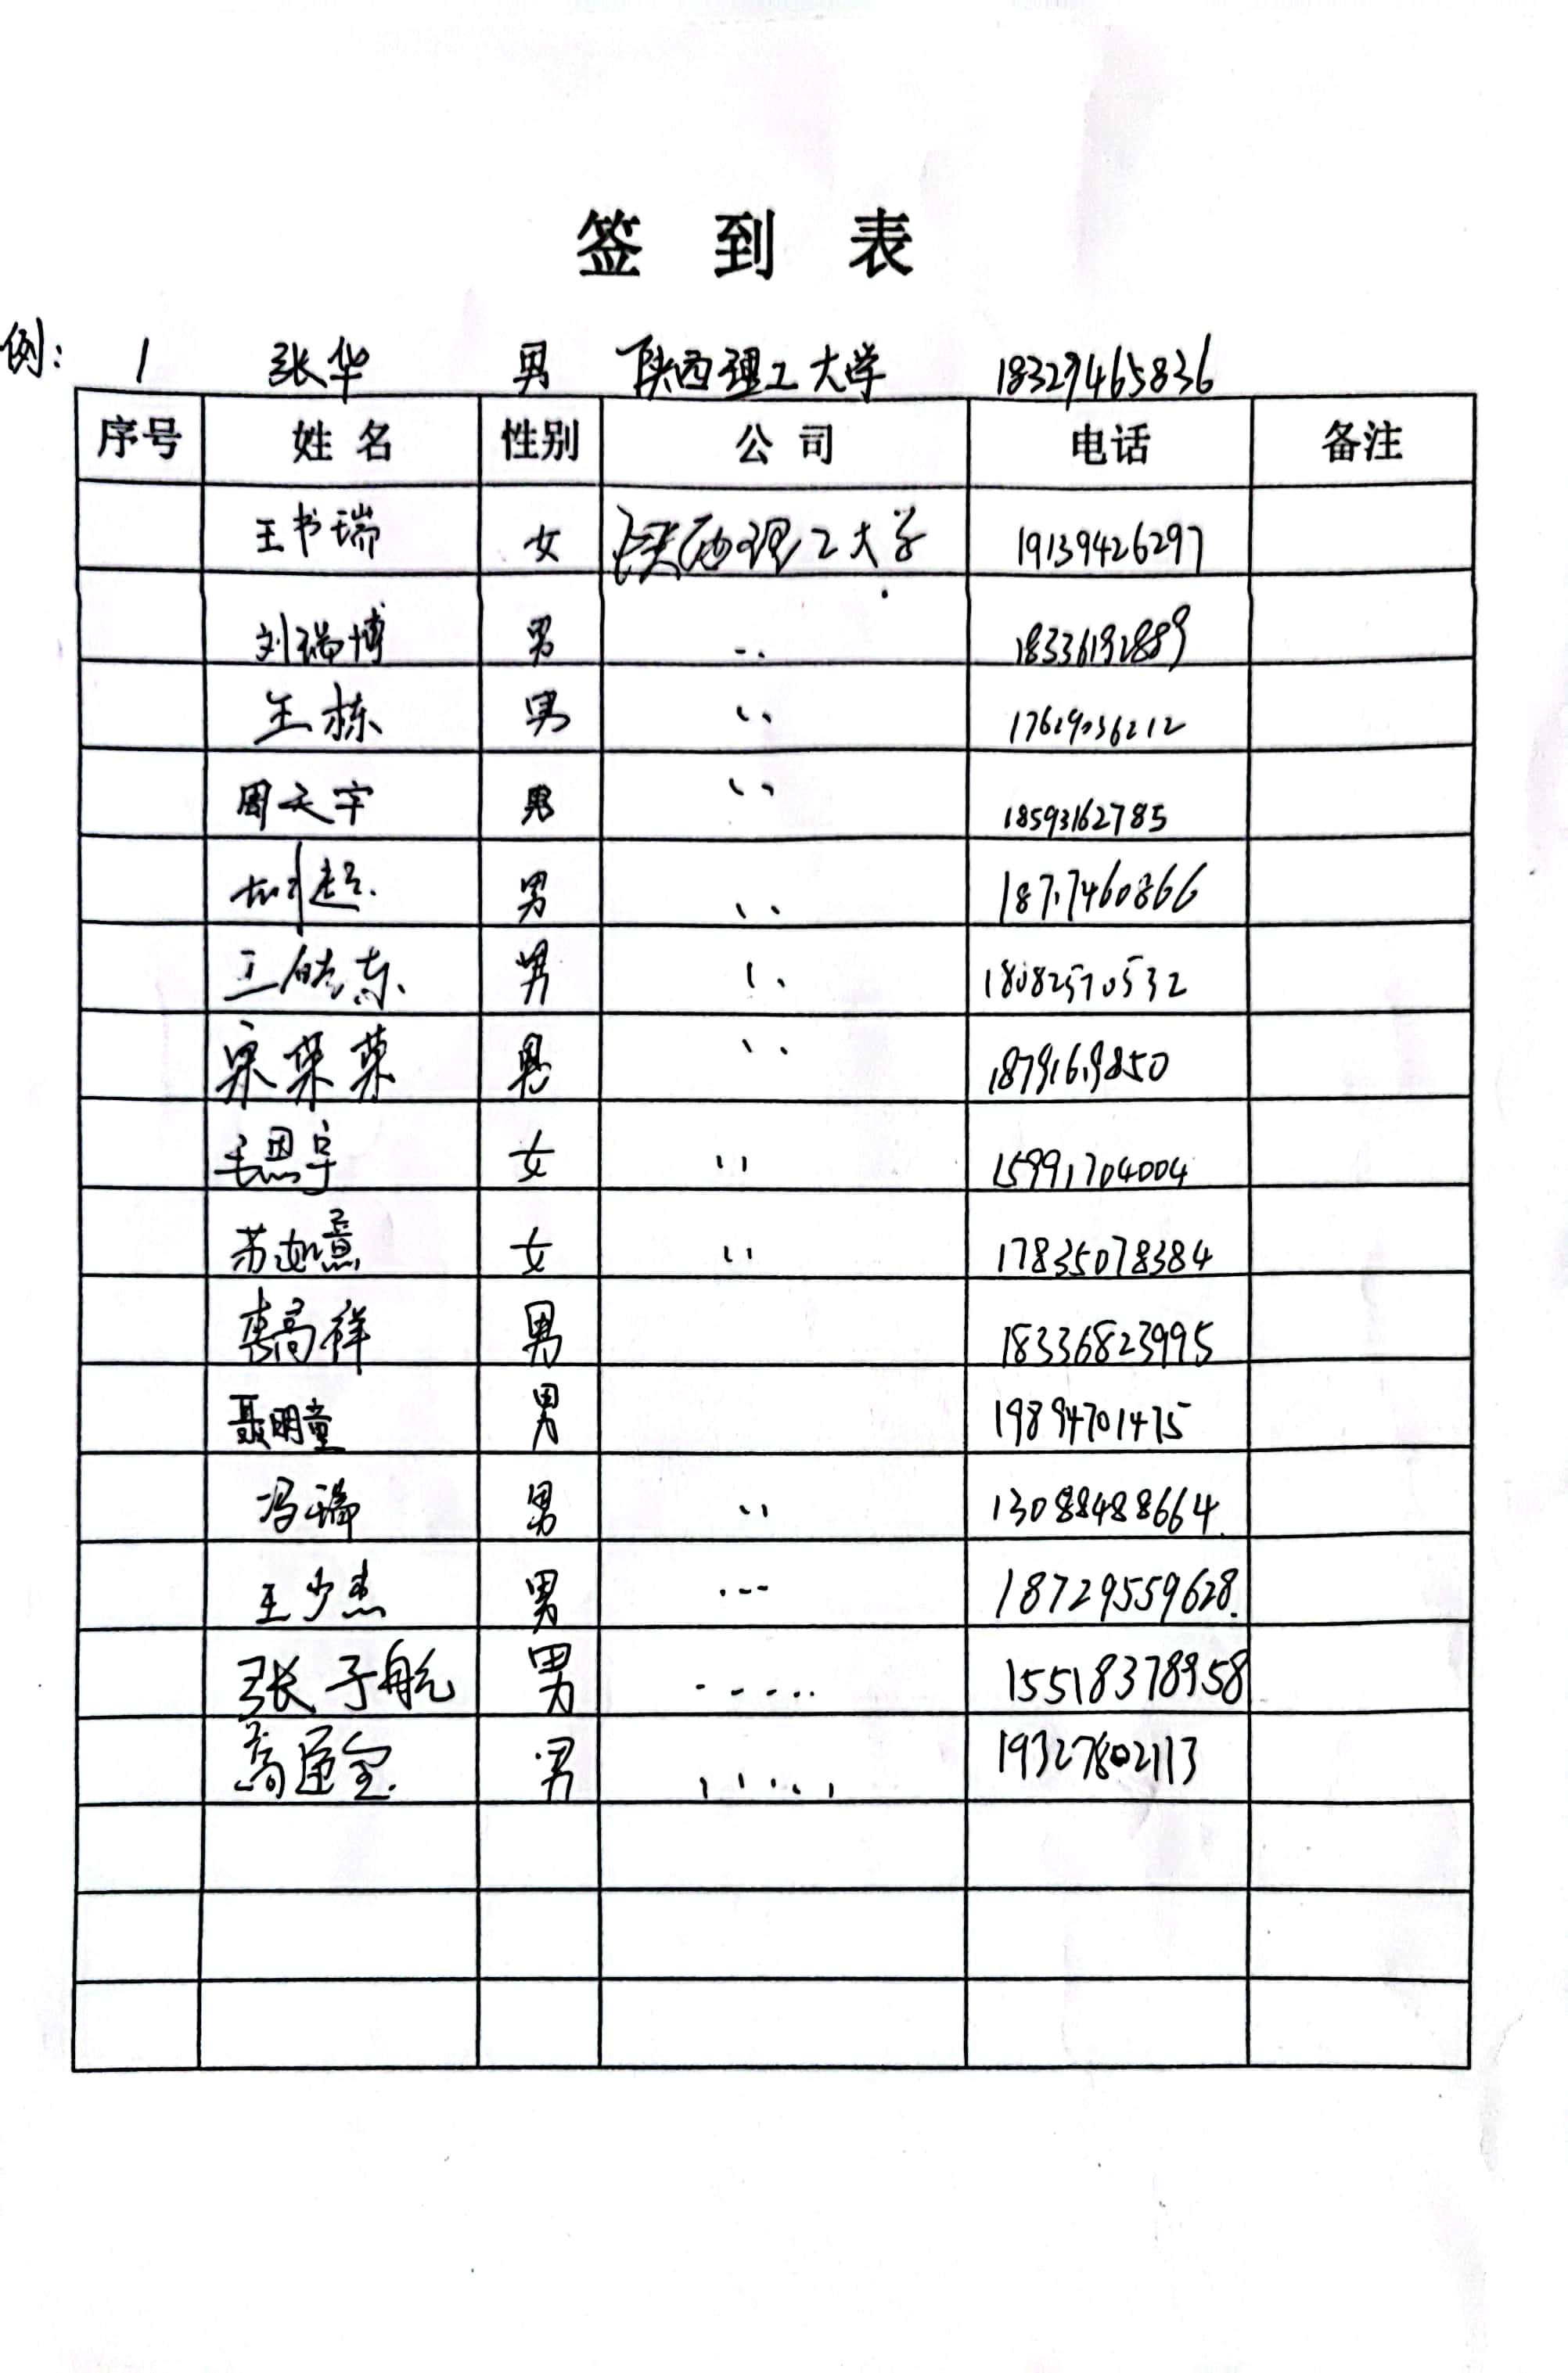 签到表
例: 1 张华 男 陕西理工大学 18329465836
序号 姓名 性别 公司 电话 备注
王书瑞 女 陕西理工大学 19139426297
刘瑞博 男 18336192889
王栋 男 17619036212
周天宇 男 18593162785
男
王皓东 男 18082570532
宋荣荣 男
毛思宇 女 15991704004
苏如意 女 17835078384
惠高祥 男 18336823995
聂明童 男 19894701475
冯瑞 男 13088488664
王少杰 男 18729559628
张子航 男 15518378958
高通宝 男 19327802113